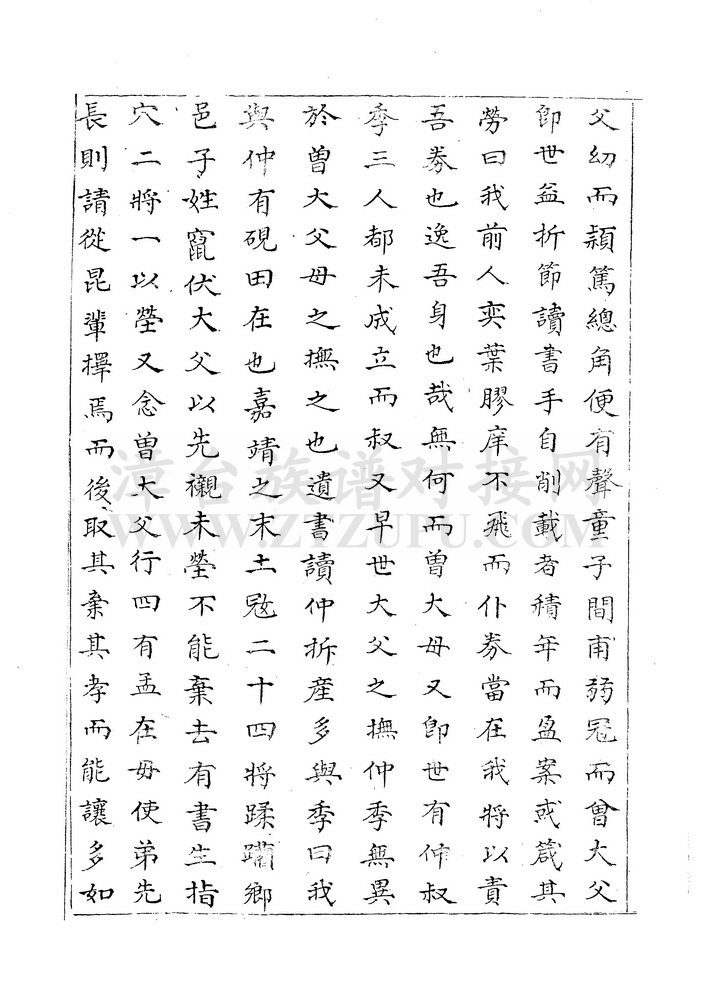 父幼而頴篤總角便有聲童子間甫弱冠而曾大父
卽世益折節讀書手自削載者積年而盈案或箴其
勞曰我前人奕葉膠庠不飛而仆券當在我將以責
吾券也逸吾身也哉無何而曾大母又卽世有仲叔
季三人都未成立而叔又早世大父之撫仲季無異
於曾大父母之撫之也遺書讀仲拆産多與季曰我
與仲有硯田在也嘉靖之末土冦二十四將蹂躪鄉
邑子姓竄伏大父以先櫬未塋不能棄去有書生指
穴二將一以塋又念曾大父行四有孟在毋使弟先
長則請從昆輩擇焉而後取其棄其孝而能讓多如
漳台族谱对接网
WWW.ZTZUPU.COM